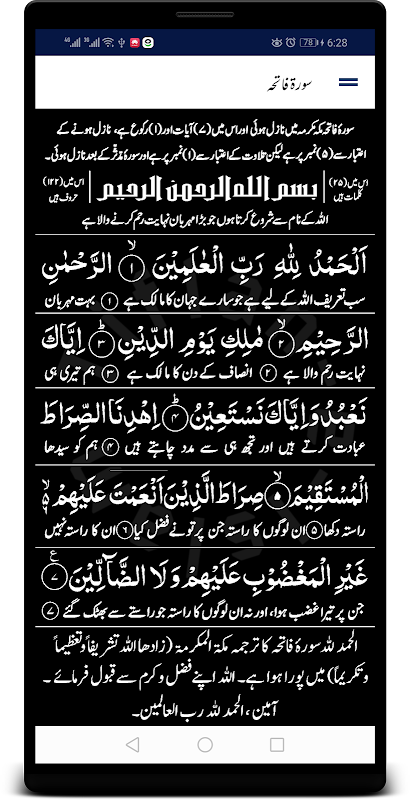 4G 3G 78 6:28
سورۃ فاتحہ
سورۂ فاتحہ مکہ مکرمہ میں نازل ہوئی اور اس میں (۷) آیات اور (۱) رکوع ہے، نازل ہونے کے
اعتبار سے (۵) نمبر پر ہے لیکن تلاوت کے اعتبار سے (۱) نمبر پر ہے اور سورۂ مدّثّر کے بعد نازل ہوئی۔
اس میں (۲۵) کلمات ہیں بسم الله الرحمن الرحیم اس میں (۱۲۲) حروف ہیں
اللہ کے نام سے شروع کرتا ہوں جو بڑا مہربان نہایت رحم کرنے والا ہے
اَلْحَمْدُ لِلّٰهِ رَبِّ الْعٰلَمِیْنَ ۙ﴿۱﴾ الرَّحْمٰنِ
سب تعریف اللہ کے لیے ہے جو سارے جہان کا مالک ہے ﴿۱﴾ بہت مہربان
الرَّحِیْمِ ۙ﴿۲﴾ مٰلِکِ یَوْمِ الدِّیْنِ ؕ﴿۳﴾ اِیَّاکَ
نہایت رحم والا ہے ﴿۲﴾ انصاف کے دن کا مالک ہے ﴿۳﴾ ہم تیری ہی
نَعْبُدُ وَ اِیَّاکَ نَسْتَعِیْنُ ؕ﴿۴﴾ اِهْدِنَا الصِّرَاطَ
عبادت کرتے ہیں اور تجھ ہی سے مدد چاہتے ہیں ﴿۴﴾ ہم کو سیدھا
الْمُسْتَقِیْمَ ۙ﴿۵﴾ صِرَاطَ الَّذِیْنَ اَنْعَمْتَ عَلَیْهِمْ ۙ۬
راستہ دکھا ﴿۵﴾ ان لوگوں کا راستہ جن پر تو نے فضل کیا ﴿۶﴾ ان کا راستہ نہیں
غَیْرِ الْمَغْضُوْبِ عَلَیْهِمْ وَ لَا الضَّآلِّیْنَ ﴿۷﴾ ع
جن پر تیرا غضب ہوا، اور نہ ان لوگوں کا راستہ جو راستے سے بھٹک گئے ﴿۷﴾
الحمد للہ سورۂ فاتحہ کا ترجمہ مکۃ المکرمۃ (زادھا اللہ تشریفاً وتعظیماً
وتکریماً) میں پورا ہوا ہے۔ اللہ اپنے فضل و کرم سے قبول فرمائے ۔
آمین، الحمد للہ رب العالمین۔